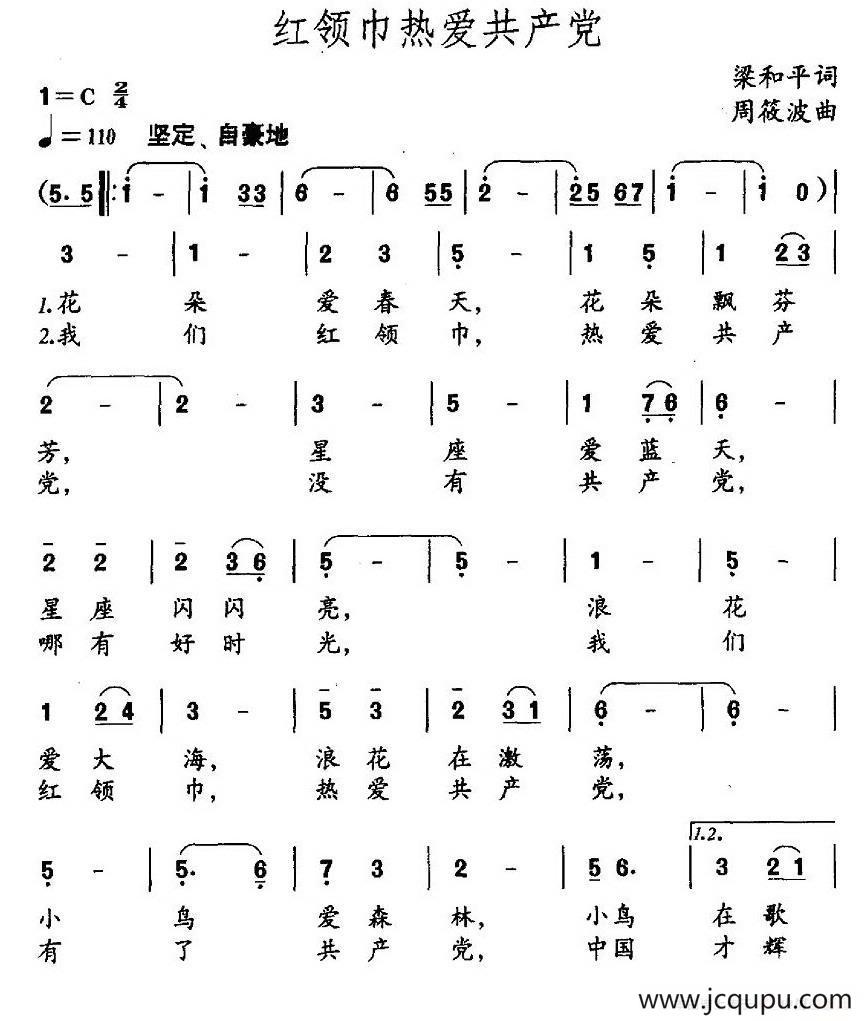 红领巾热爱共产党
梁和平词
1=C 2/4
周筱波曲
♩=110 坚定、自豪地
(5. 5 ‖: 1 - | 1 33 | 6 - | 6 55 | 2 - | 25 67 | 1 - | 1 0 ) |
3 - | 1 - | 2 3 | 5 - | 1 5 | 1 23 |
1.花 朵 爱 春 天, 花 朵 飘 芬
2.我 们 红 领 巾, 热 爱 共 产
2 - | 2 - | 3 - | 5 - | 1 76 | 6 - |
芳, 星 座 爱 蓝 天,
党, 没 有 共 产 党,
2 2 | 2 36 | 5 - | 5 - | 1 - | 5 - |
星 座 闪 闪 亮, 浪 花
哪 有 好 时 光, 我 们
1 24 | 3 - | 5 3 | 2 31 | 6 - | 6 - |
爱 大 海, 浪 花 在 激 荡,
红 领 巾, 热 爱 共 产 党,
1.2.
5 - | 5. 6 | 7 3 | 2 - | 5 6. | 3 21 |
小 鸟 爱 森 林, 小 鸟 在 歌
有 了 共 产 党, 中 国 才 辉
www.jcqupu.com